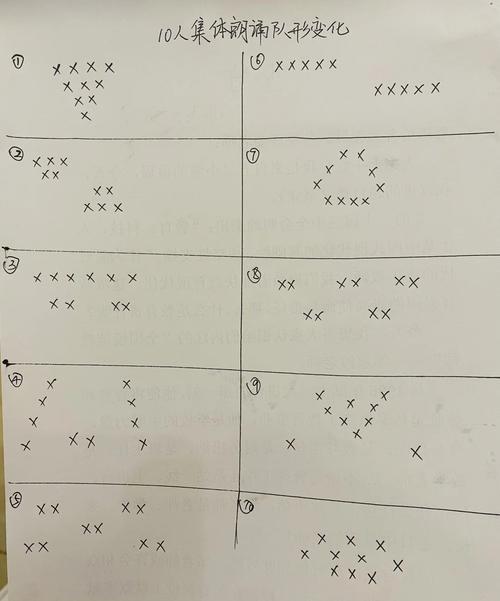 10人集体朗诵队形变化
①
× × × ×
× × ×
× ×
×
②
× × ×
× ×
× ×
× × ×
③
× × × × × ×
× × × ×
④
× ×
× ×
× ×
× × × ×
⑤
× × × ×
× ×
× × × ×
⑥
× × × × ×
× × × × ×
⑦
× ×
× ×
× ×
× × × ×
⑧
× × × × × ×
× × × ×
⑨
× ×
× ×
× ×
× ×
× ×
⑩
× × ×
× × × × ×
× × ×